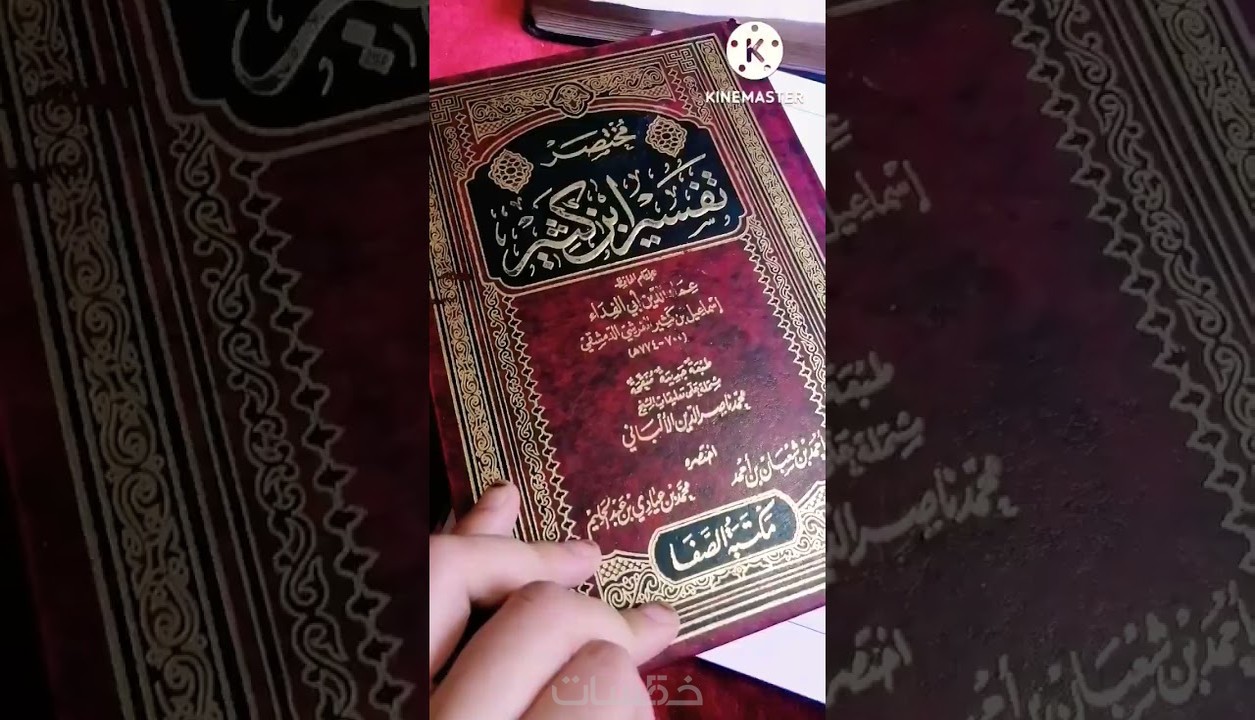 KINEMASTER
مُخْتَصَرْ
تَفْسِيْر ابْن كَثِيْر
للإمام الحافظ
عماد الدين أبي الفداء
إسماعيل بن كثير القرشي الدمشقي
(٧٠٠-٧٧٤هـ)
طبعة جديدة منقحة
مشتملة على تعليقات الشيخ
محمد ناصر الدين الألباني
اختصره
أحمد بن شعبان بن أحمد
محمد بن عيادي بن عبد الحليم
مكتبة الصفا